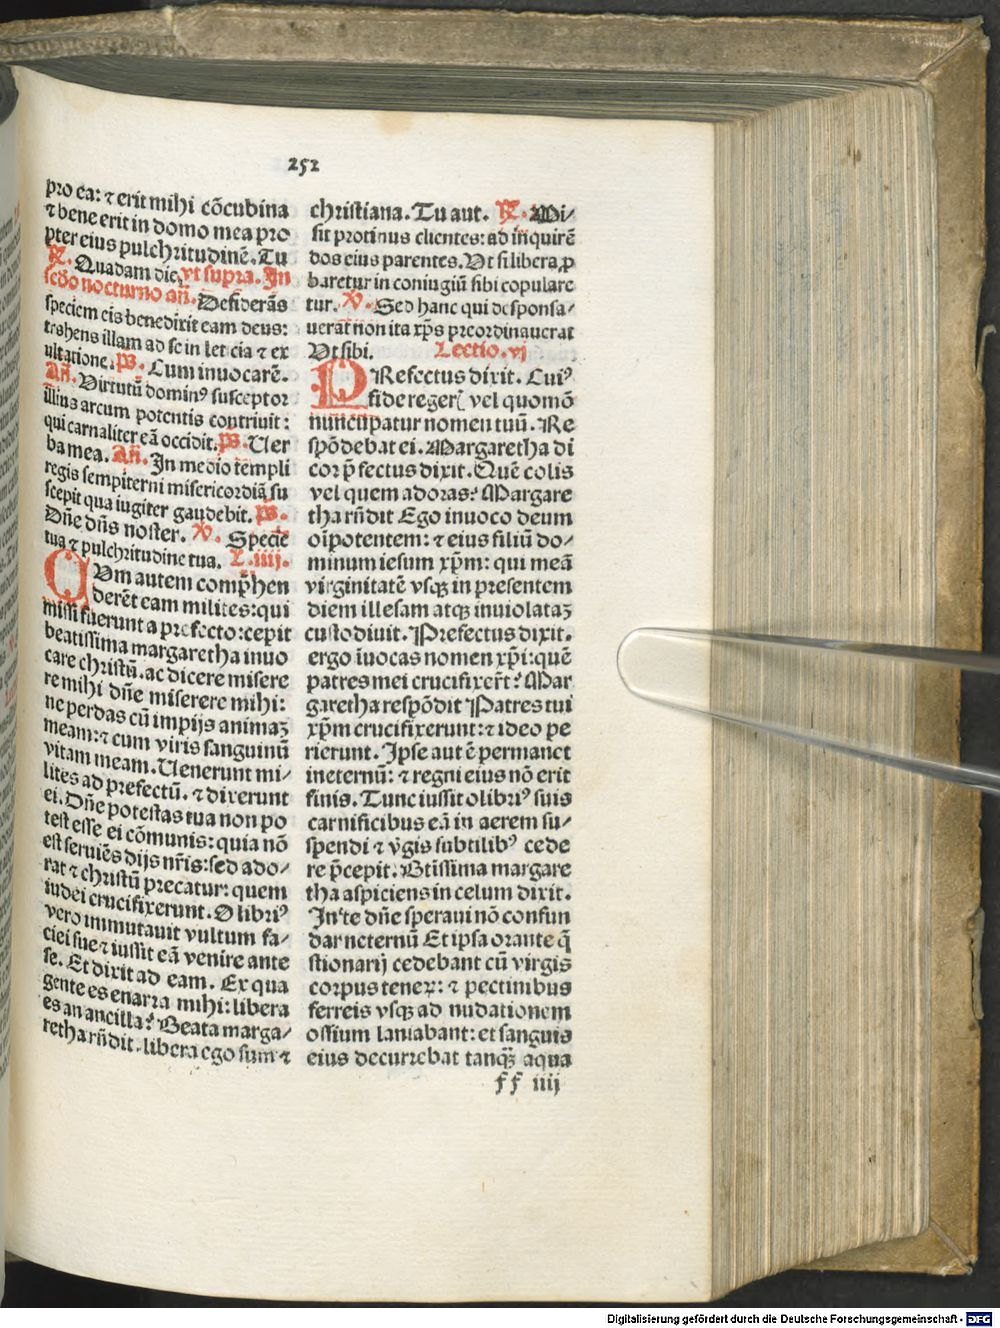 252
pro ea: ⁊ erit mihi cõcubina
⁊ bene erit in domo mea pro
pter eius pulchritudinẽ. Tu
℟. Quadam die. vt supra. In
scd̃o nocturno añ. Desiderãs
speciem eis benedixit eam deus:
trahens illam ad se in leticia ⁊ ex
ultatione. p̃s. Cum inuocarẽ.
Añ. Virtutũ dominꝰ susceptor
illius arcum potentis contriuit:
qui carnaliter eã occidit. p̃s. Uer
ba mea. Añ. In medio templi
regis sempiterni misericordiã su
scepit qua iugiter gaudebit. p̃s.
Dñe dñs noster. ℣. Specie
tua ⁊ pulchritudine tua. L. iiij.
CVm autem comp̃hen
derẽt eam milites: qui
missi fuerunt a prefecto: cepit
beatissima margaretha inuo
care christũ. ac dicere misere
re mihi dñe miserere mihi:
ne perdas cũ impijs animaꝫ
meam: ⁊ cum viris sanguinũ
vitam meam. Uenerunt mi/
lites ad prefectũ. ⁊ dixerunt
ei. Dñe potestas tua non po
test esse ei cõmunis: quia nõ
est seruiẽs dijs nr̃is: sed ado/
rat ⁊ christũ precatur: quem
iudei crucifixerunt. Olibriꝰ
vero immutauit vultum fa/
ciei sue ⁊ iussit eã venire ante
se. Et dixit ad eam. Ex qua
gente es enarra mihi: libera
es an ancilla? Beata marga/
retha rñdit. libera ego sum ⁊
christiana. Tu aut. ℟. Mi/
sit protinus clientes: ad inquirẽ
dos eius parentes. Vt si libera ꝓ
baretur in coniugiũ sibi copulare
tur. ℣. Sed hanc qui desponsa/
uerat non ita xp̃s preordinauerat
Vt sibi. Lectio. vj
PRefectus dixit. Cuiꝰ
fide regeri vel quomõ
nuncupatur nomen tuũ. Re
spõdebat ei. Margaretha di
cor p̃fectus dixit. Quẽ colis
vel quem adoras? Margare
tha rñdit Ego inuoco deum
oĩpotentem: ⁊ eius filiũ do/
minum iesum xp̃m: qui meã
virginitatẽ vsqꝫ in presentem
diem illesam atqꝫ inuiolataꝫ
custodiuit. Prefectus dixit.
ergo ĩuocas nomen xp̃i: quẽ
patres mei crucifixer̃t? Mar
garetha respõdit Patres tui
xp̃m crucifixerunt: ⁊ ideo pe
rierunt. Ipse aut ẽ permanet
in eternũ: ⁊ regni eius nõ erit
finis. Tunc iussit olibriꝰ suis
carnificibus eã in aerem su/
spendi ⁊ v̓gis subtilibꝰ cede
re p̃cepit. Btĩssima margare
tha aspiciens in celum dixit.
In te dñe speraui nõ confun
dar neternũ Et ipsa orante q̃
stionarij cedebant cũ virgis
corpus teneꝝ: ⁊ pectinibus
ferreis vsqꝫ ad nudationem
ossium laniabant: et sanguis
eius decurrebat tanqꝫ̃ aqua
ff iiij
Digitalisierung gefördert durch die Deutsche Forschungsgemeinschaft - DFG